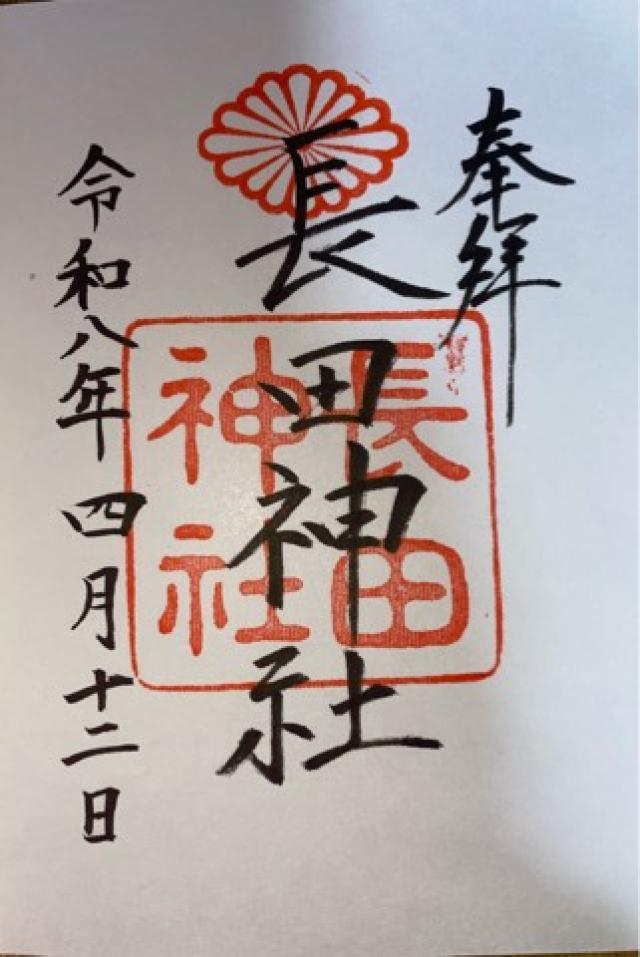 奉拝
長田神社
長田
神社
令和八年四月十二日